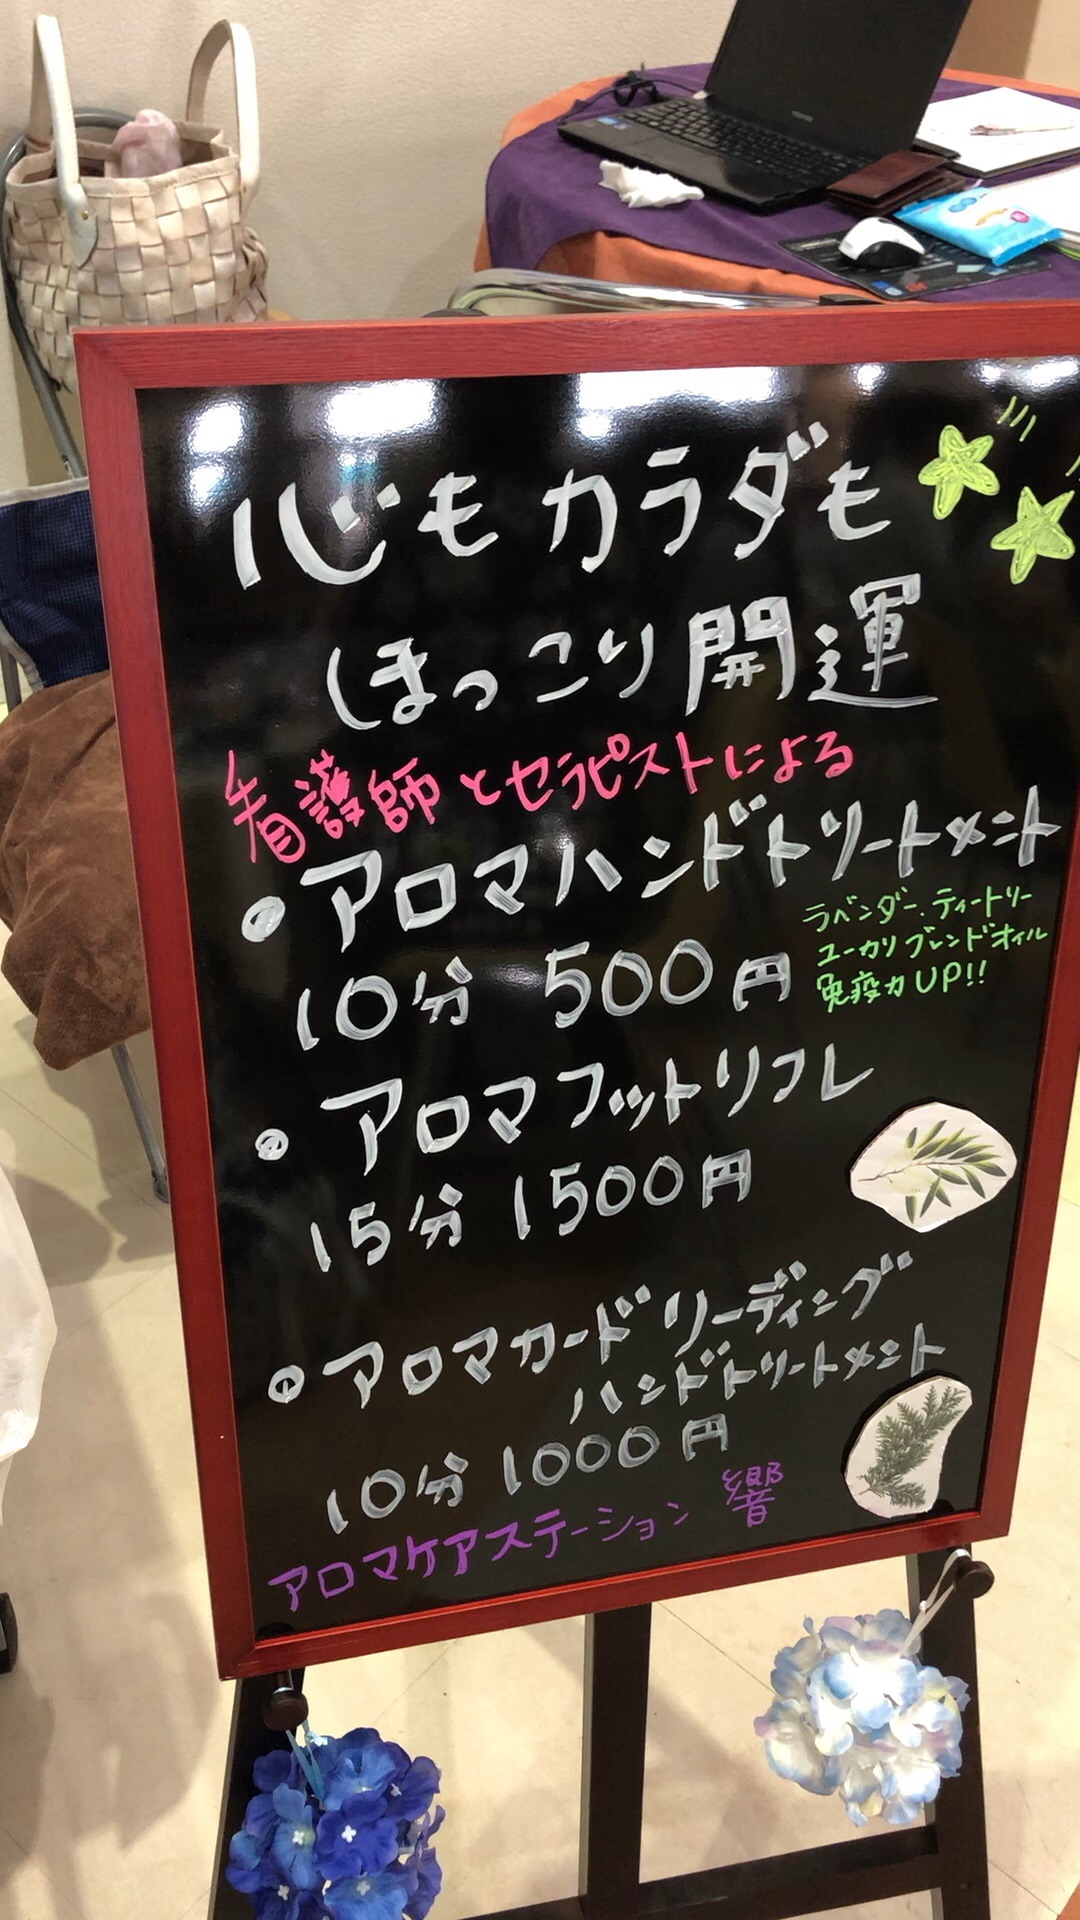 心もカラダも
ほっこり開運
看護師とセラピストによる
・アロマハンドトリートメント
10分 500円
ラベンダー.ティートリー
ユーカリブレンドオイル
免疫力UP!!
・アロマフットリフレ
15分 1500円
・アロマカードリーディング
ハンドトリートメント
10分 1000円
アロマケアステーション 響